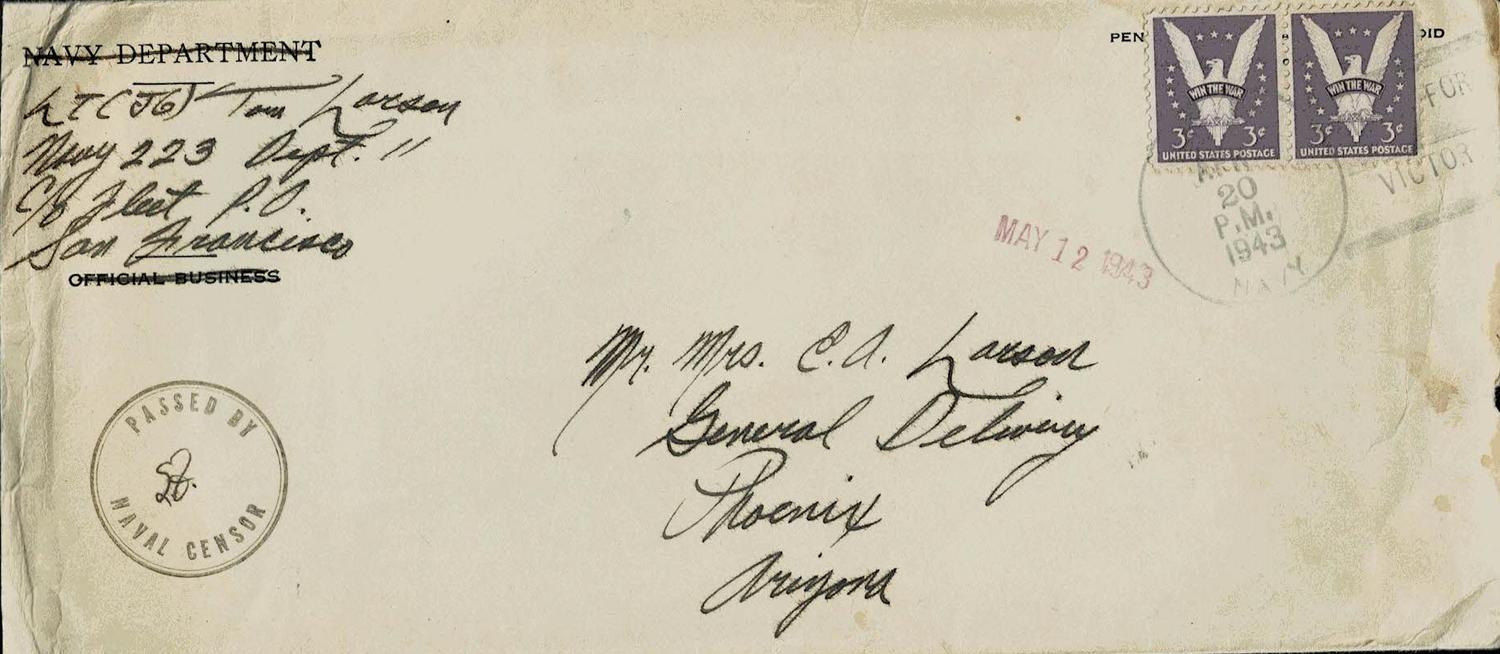 NAVY DEPARTMENT
LT (JG) Tom Larson
Navy 223 Dept. 11
C/o Fleet P.O.
San Francisco
OFFICIAL BUSINESS
PEN
OID
WIN THE WAR
3¢ 3¢
UNITED STATES POSTAGE
WIN THE WAR
3¢ 3¢
UNITED STATES POSTAGE
FOR
VICTOR
APR
20
P.M.
1943
NAVY
MAY 12 1943
Mr. Mrs. C.A. Larson
General Delivery
Phoenix
Arizona
PASSED BY
NAVAL CENSOR